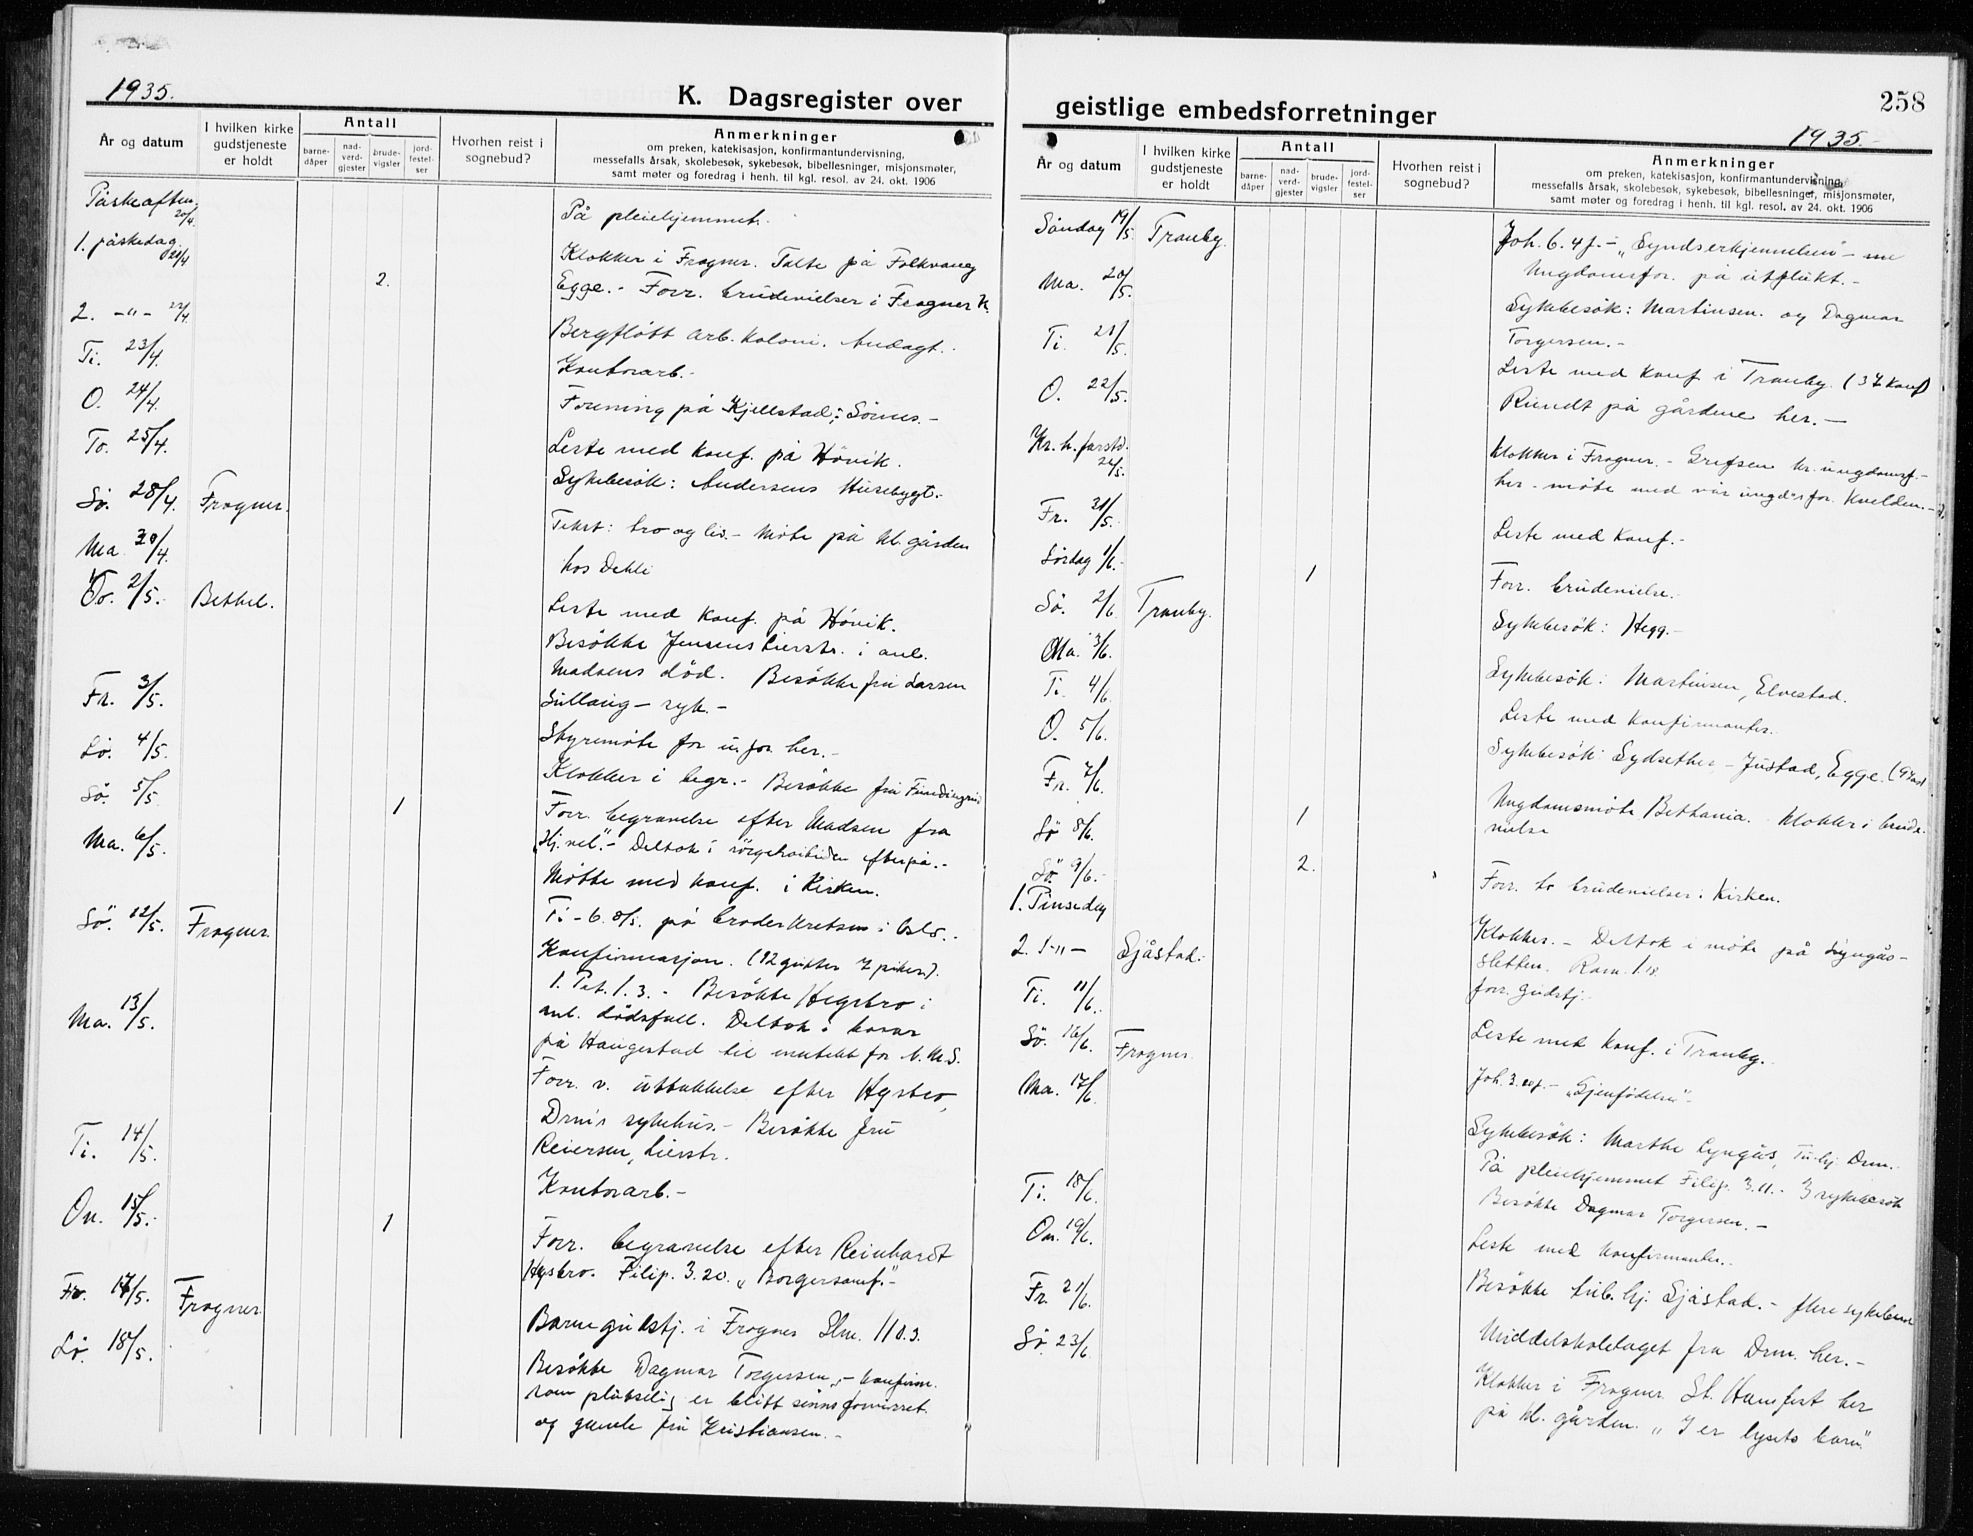 1935.
K. Dagsregister over
År og datum
I hvilken kirke gudstjeneste er holdt
Antall
barne-dåper
nad-verd-gjester
brude-vigsler
jord-festel-ser
Hvorhen reist i sognebud?
Anmerkninger
om preken, katekisasjon, konfirmantundervisning,
messefalls årsak, skolebesøk, sykebesøk, bibellesninger, misjonsmøter,
samt møter og foredrag i henh. til kgl. resol. av 24. okt. 1906
Påskeaften 20/4. På pleiehjemmet.
1. påskedag 21/4 Klokker i Frogner. Talte på Folkvang
2. Egge. - Forr. brudevielser i Frogner K.
2. -"- 22/4. Bergflött arb. koloni. Andagt.
Ti. 23/4. Kontorarb.-
O. 24/4. Forening på Kjellstad; Sörnes.-
To. 25/4. Leste med konf. på Hövik.
Sykebesök: Andersens Husebygt.-
Sö. 28/4. Frogner. Tekst: tro og liv. - Möte på kl. gården
Ma. 29/4. hos Dehli
To. 2/5. Bethel. Leste med konf. på Hövik.
Besökte Jensens Lierstr. i anl.
Madsens död. Besökte fru Larsen
Fr. 3/5. Sullaug - syk.-
Lö. 4/5. Styremöte for u. for. her.-
Sö. 5/5 Klokker i begr.- Besökte fru
1 Forr. begravelse efter Madsen fra
Ma. 6/5. "Hj. vel".- Deltok i sörgehöitiden efterpå.-
Mötte med konf. i Kirken.
Ti - 6. 8/5. på broderkretsen i Oslo.-
Sö. 12/5. Frogner. Konfirmasjon. (12 gutter 7 piker).
1. Pet. 1.3. - Besökte Hegsbro i
Ma. 13/5. anl. dödsfall. Deltok i basar
på Haugestad til inntekt for N.M.S.
Forr. v. utbakkelse efter Hysbro,
Drm's sykehus. - Besökte fru
Ti. 14/5. Reiersen, Lierstr.
Kontorarb.-
On. 15/5. 1 Forr. begravelse efter Reinhardt
Hysbro. Filip. 3.20. "Borgersamf."-
Fr. 17/5. Frogner. Barnegudstj. i Frogner Slm. 118.3.
Lö. 18/5. Besökte Dagmar Torgersen, - konfirm.
som plutselig er blitt sinnsforvirret.
og gamle fru Kristiansen.-
258
geistlige embedsforretninger
1935.-
År og datum
I hvilken kirke gudstjeneste er holdt
Antall
barne-dåper
nad-verd-gjester
brude-vigsler
jord-festel-ser
Hvorhen reist i sognebud?
Anmerkninger
om preken, katekisasjon, konfirmantundervisning,
messefalls årsak, skolebesøk, sykebesøk, bibellesninger, misjonsmøter,
samt møter og foredrag i henh. til kgl. resol. av 24. okt. 1906
Söndag 19/5. Tranby. Joh. 6. 4f. - "Syndserkjennelsen" -
Ungdomsfor. på utflukt.-
Ma. 20/5. Sykebesök: Martinsen. og Dagmar
Ti. 21/5. Torgersen.-
Leste med konf i Tranby. (37 konf)
O. 22/5. Rundt på gårdene her.-
Kr. h. farstd. Klokker i Frogner. - Grefsen kr. ungdomsf.-
her - möte med vår ungd's for. Kvelden.-
Fr. 31/5. Leste med konf.-
Lördag 1/6.- 1 Forr. brudevielse.-
Sö. 2/6 Tranby. Sykebesök: Hegg.-
Ma. 3/6. Sykebesök: Martinsen, Elvestad.
Ti. 4/6. Leste med konfirmanter.
O. 5/6. Sykebesök Sydsether - Justad, Egge.
Fr. 7/6. Ungdomsmöte Bethania. Klokker i brude-
Lö 8/6. 1 vielse
Sö. 9/6.- 2. Forr. to brudevielser i Kirken.
1. Pinsedag
2. -"- Sjåstad.- Klokker. - Deltok i möte på Lyngås-
sletten. Rom. 1.
forr. gudstj.
Ti. 11/6. Leste med konf. i Tranby.
Sö. 16/6. Frogner. Joh. 3. - "Gjenfödelse"-
Ma. 17/6. Sykebesök: Marthe Lyngås, Tu-hj. Drm.
På pleiehjemmet Filip. 3.11.- 3 sykebesök
Ti. 18/6. Besökte Dagmar Torgersen.-
On. 19/6. Leste med konfirmanter.
Fr. 21/6. Besökte tub. hj. Sjåstad. - flere sykebesök
Sö. 23/6. Middelskolelaget fra Drm. her.-
Klokker i Frogner. St. Hansfest her
på kl. gården. "I er lysets barn."